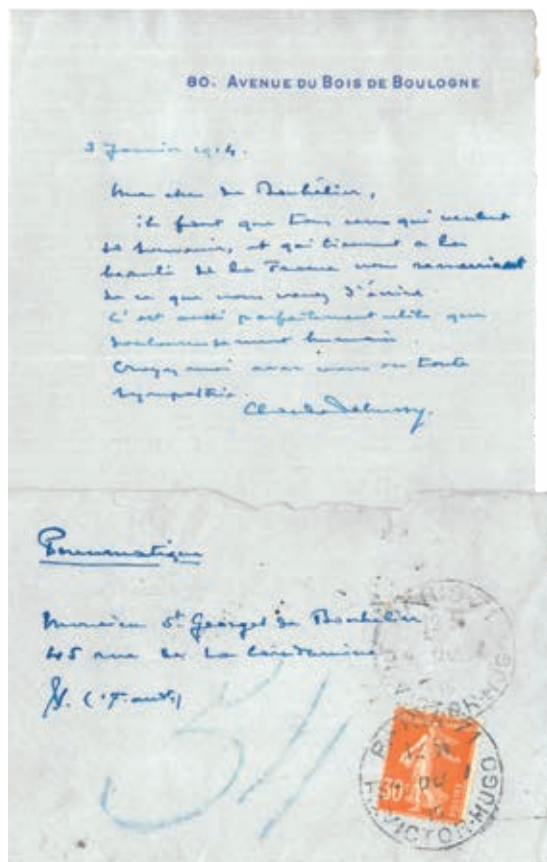 80. AVENUE DU BOIS DE BOULOGNE
3 Janvier 1914.
Mon cher de Bouhélier,
il faut que tous ceux qui veulent
se souvenir, et qui tiennent à la
beauté de la France vous remercient
de ce que vous venez d'écrire.
C'est aussi parfaitement utile que
douloureusement humain.
Croyez moi avec vous en toute
sympathie.
Claude Debussy.
Pneumatique
Monsieur St Georges de Bouhélier
45 rue de la
30
VICTOR-HUGO